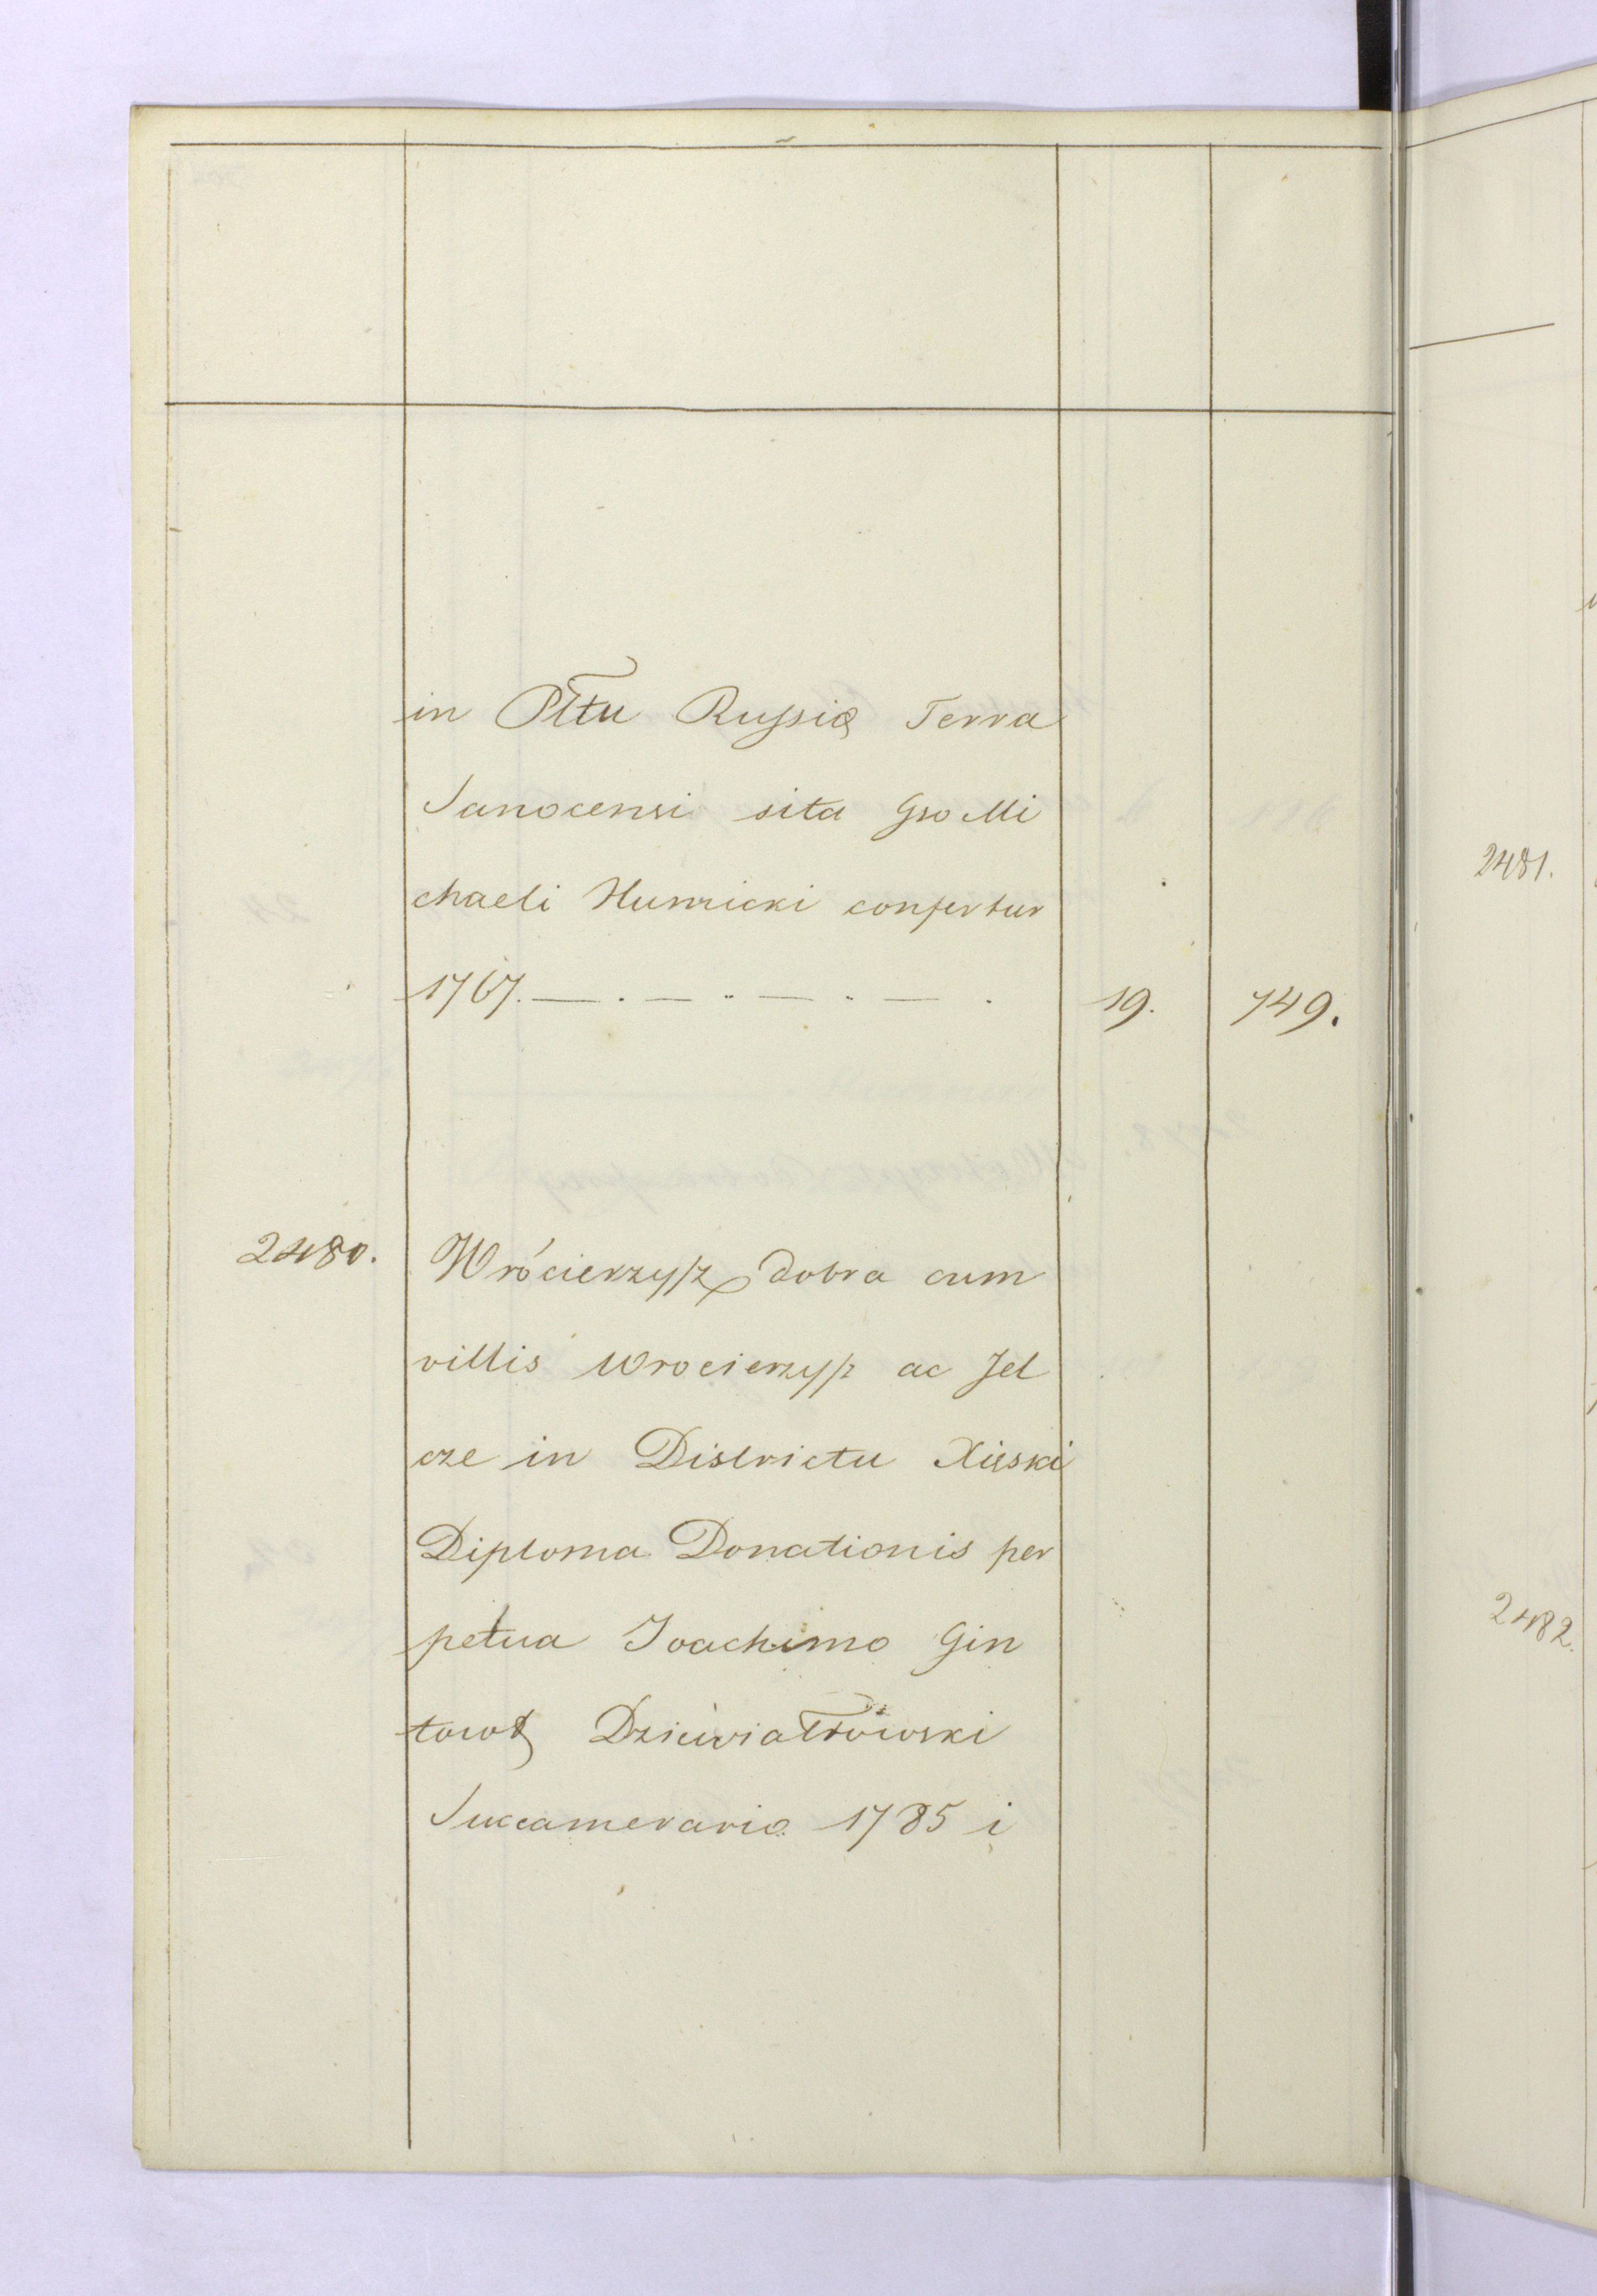 in Pltu Russiæ Terra
Sanocensi sita Gso Mi
chaeli Humicki confertur
1767. — . — .. — . — . 19. 749.
2480. Wrócierzysz dobra cum
villis Wrocierzysz ac Jel
cze in Districtu Xięski
Diploma Donationis per
petua Joachimo Gin
towt Dziewiałtowski
Succamerario 1785 i
2481.
2482.